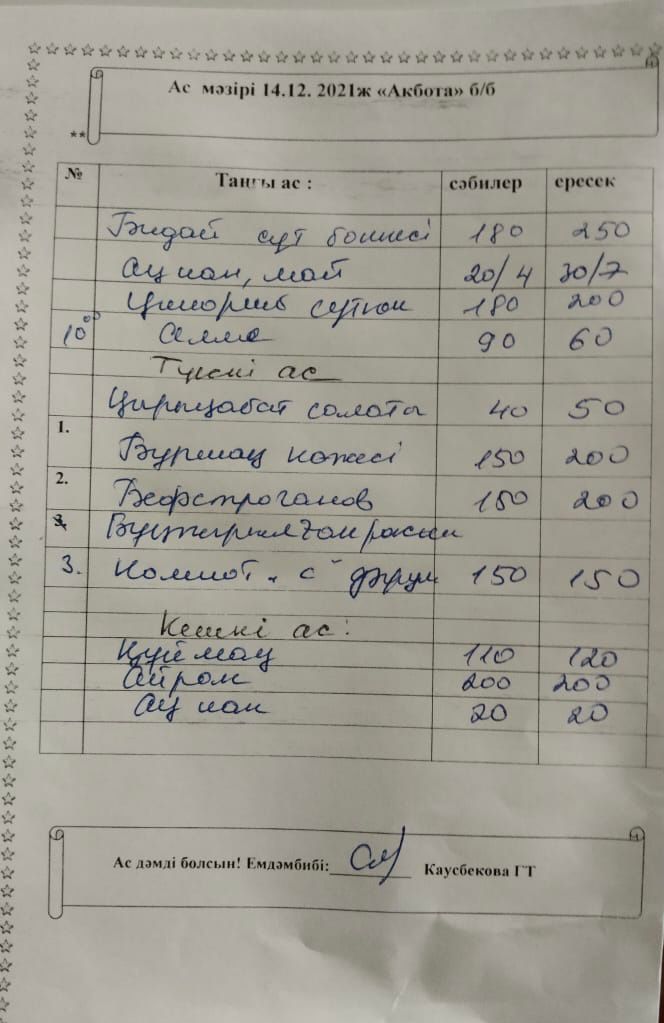 Ас мәзірі 14.12. 2021ж «Ақбота» б/б
**
№ Таңғы ас : сәбилер ересек
Бидай сүт ботқасі 180 250
Ақ нан, май 20/4 30/7
Цикорий сүтпен 180 200
10⁰⁰ Алма 90 60
Түскі ас
Қырыққабат салаты 40 50
1. Бұршақ көжесі 150 200
2. Бефстроганов 150 200
3. Бұқтырылған рожки
3. Компот с/фрук 150 150
Кешкі ас:
Құймақ 110 120
Айран 200 200
Ақ нан 20 20
Ас дәмді болсын! Емдәмбибі: Каусбекова ГТ